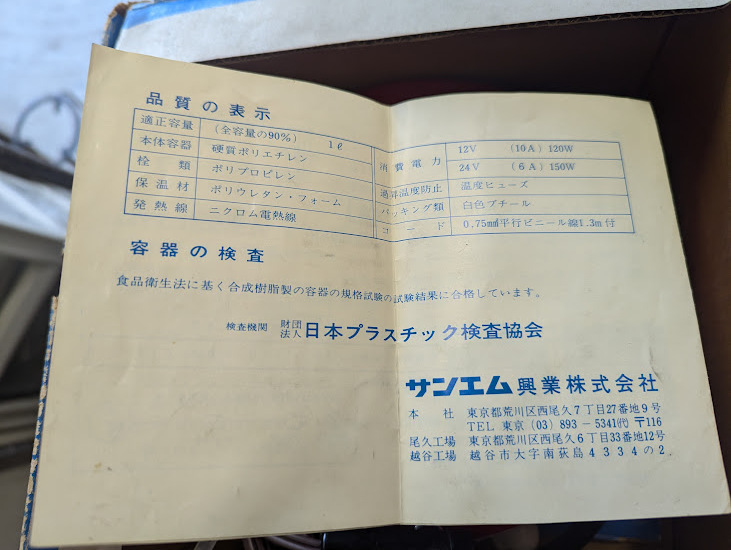 品質の表示
適正容量 (全容量の90%) 1ℓ
本体容器 硬質ポリエチレン
栓類 ポリプロピレン
保温材 ポリウレタン・フォーム
発熱線 ニクロム電熱線
消費電力 12V (10A) 120W
24V (6A) 150W
過昇温度防止 温度ヒューズ
パッキング類 白色ブチール
コード 0.75㎟平行ビニール線1.3m付
容器の検査
食品衛生法に基く合成樹脂製の容器の規格試験の試験結果に合格しています。
検査機関 財団法人 日本プラスチック検査協会
サンエム興業株式会社
本社 東京都荒川区西尾久7丁目27番地9号
TEL 東京 (03) 893-5341(代) 〒116
尾久工場 東京都荒川区西尾久6丁目33番地12号
越谷工場 越谷市大字南荻島4334の2